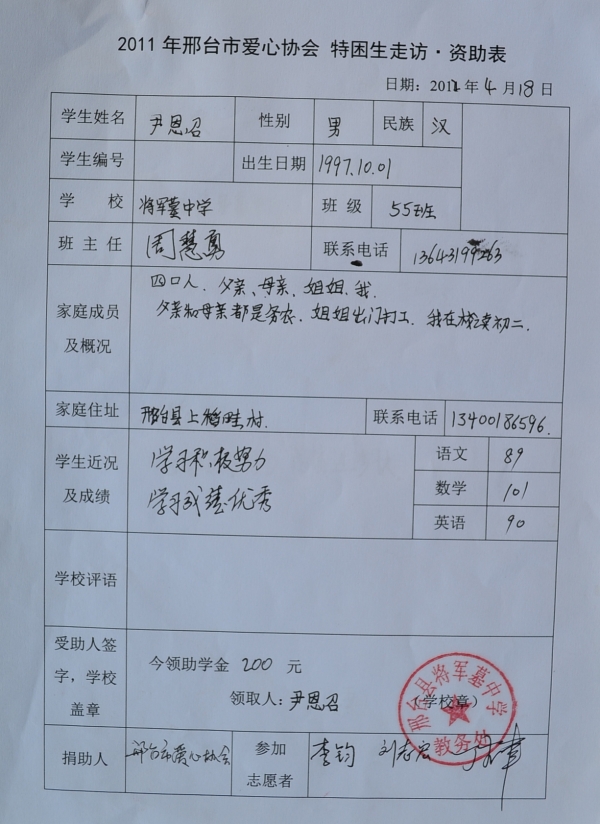 2011年邢台市爱心协会 特困生走访·资助表
日期：2012年4月18日
学生姓名 尹恩召 性别 男 民族 汉
学生编号 出生日期 1997.10.01
学校 将军墓中学 班级 55班
班主任 周慧勇 联系电话
家庭成员及概况
四口人、父亲、母亲、姐姐、我.
父亲和母亲都是务农、姐姐出门打工、我在校读初二.
家庭住址 邢台县上稻畦村. 联系电话 13400186596.
学生近况及成绩
学习积极努力
学习成绩优秀
语文 89
数学 101
英语 90
学校评语
受助人签字，学校盖章
今领助学金 200 元
领取人：尹恩召 （学校章）
邢台县将军墓中学
教务处
捐助人 邢台市爱心协会 参加志愿者 李钧 刘志宏